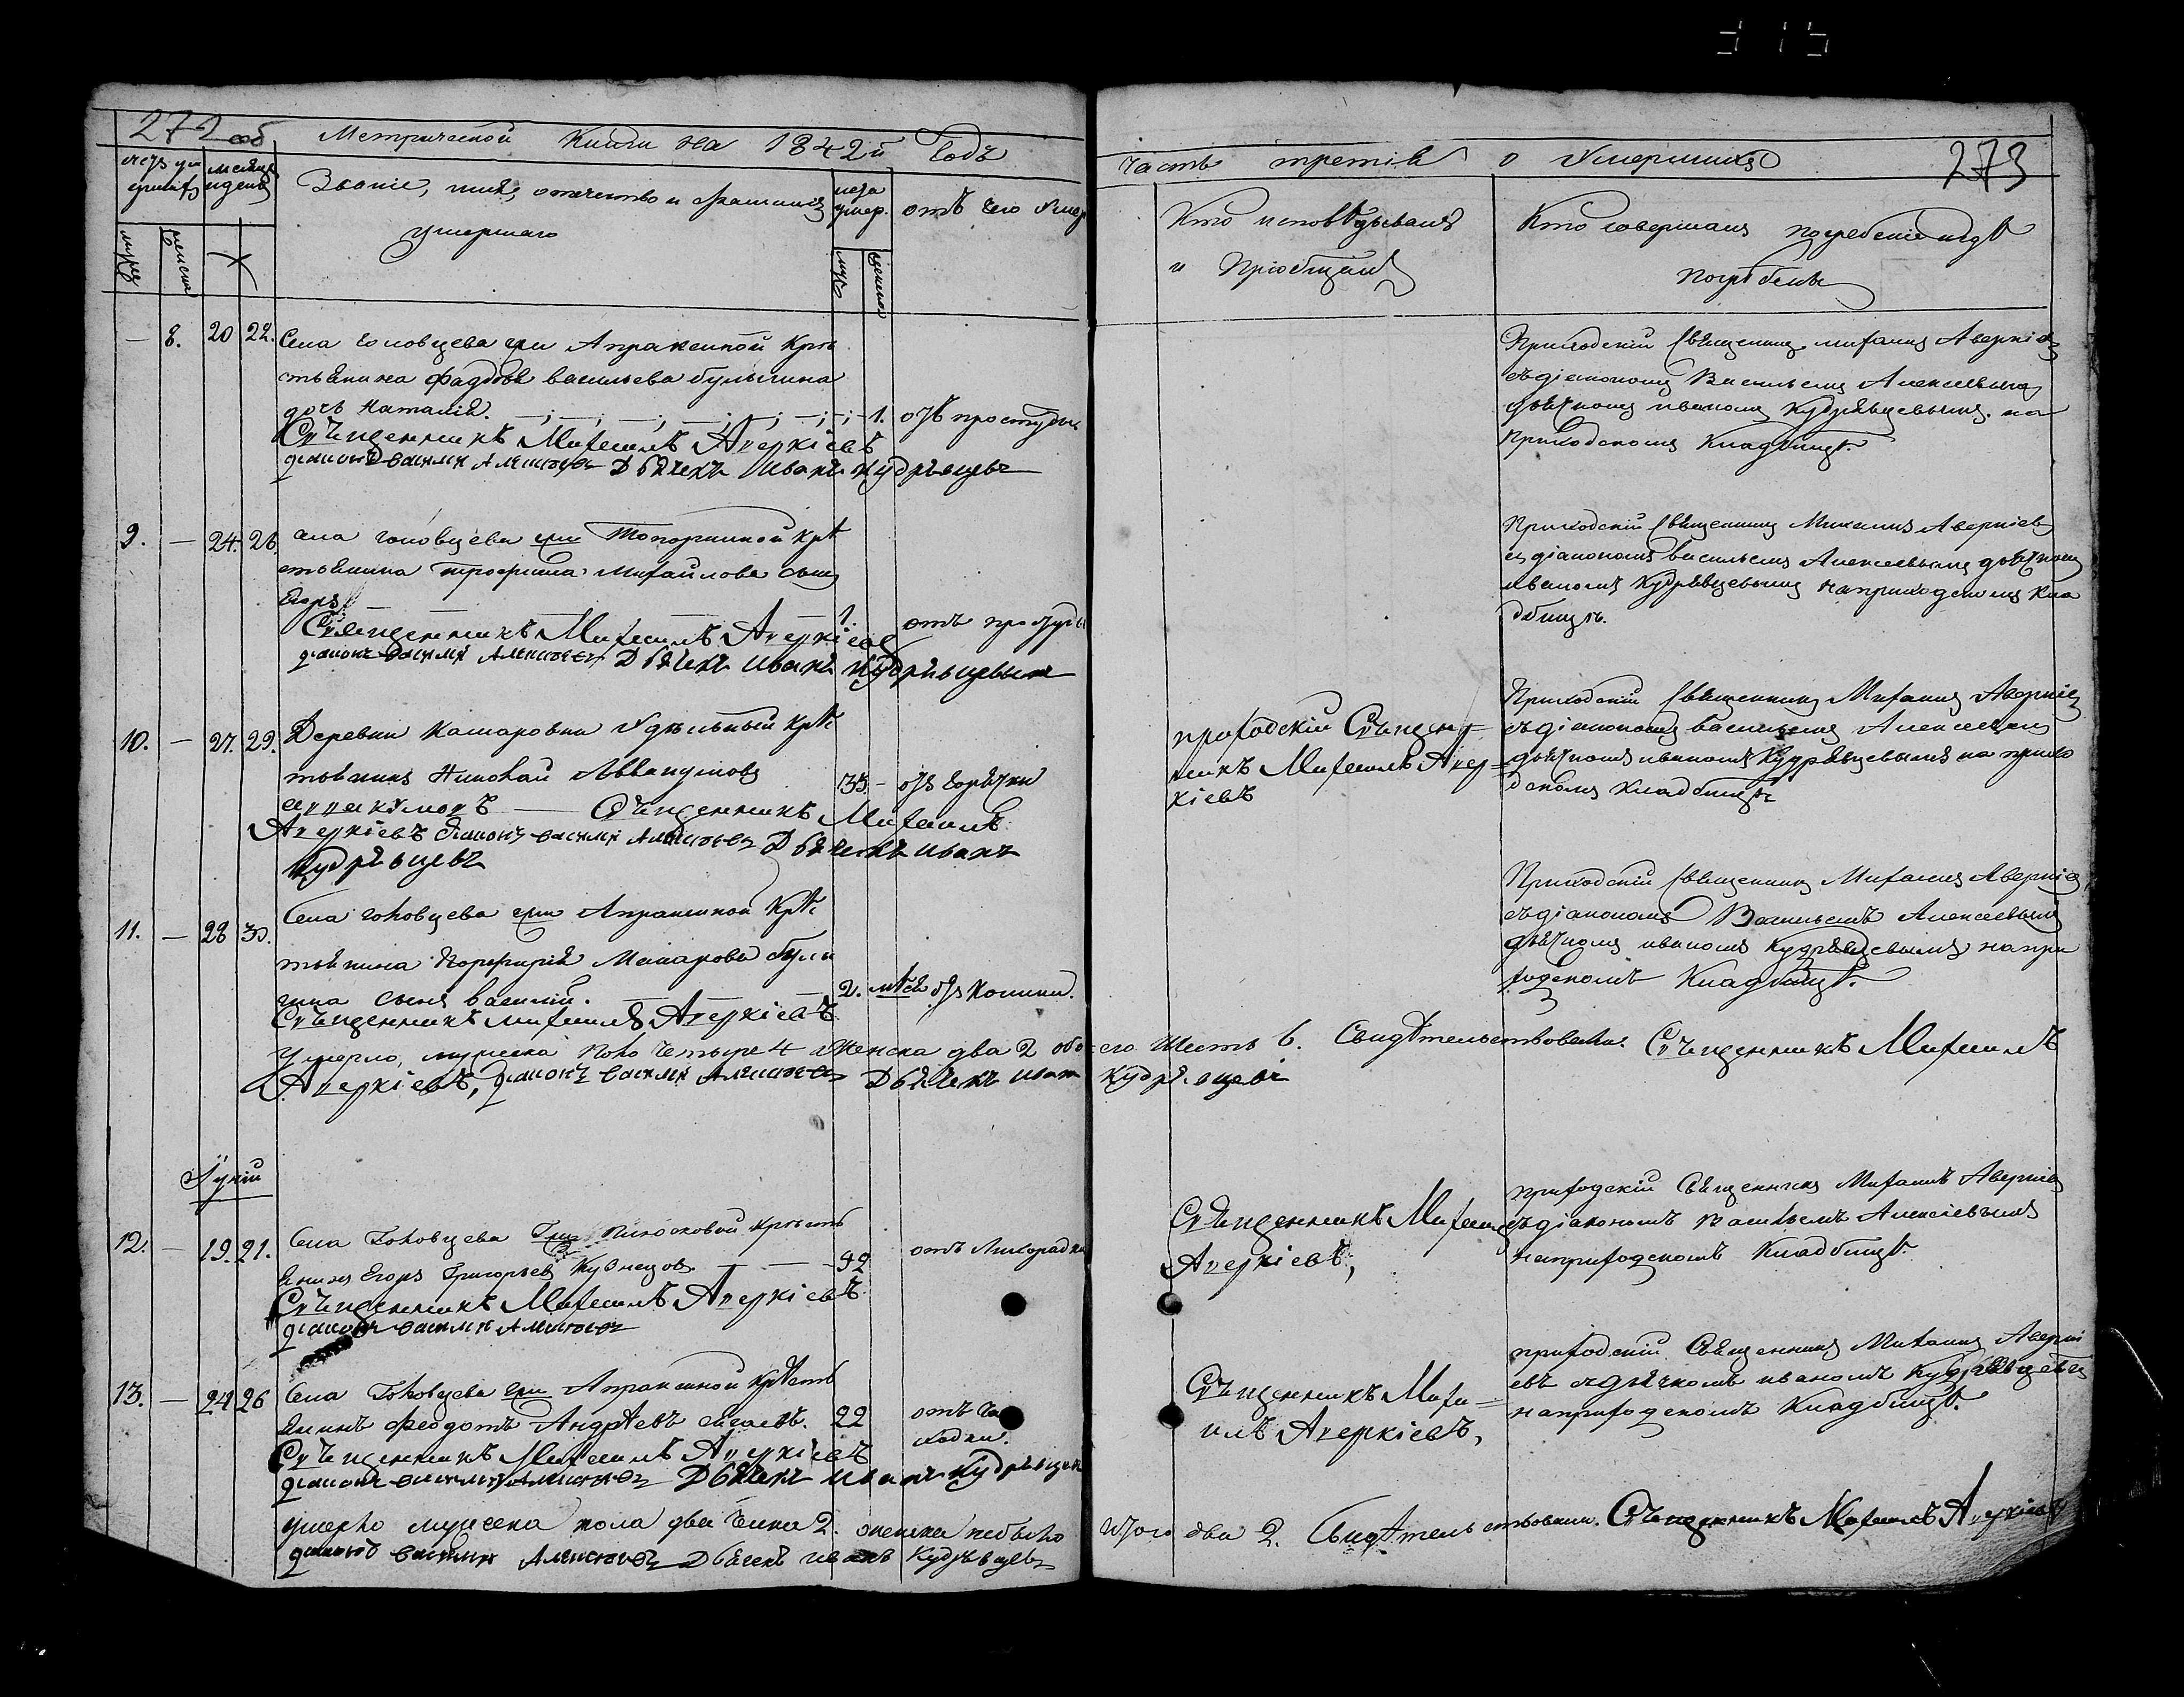 315
272 об Метрической Книги на 1842й Годъ
часть третія о Умершихъ 273
месяцъ и день
Званіе, имя, отечество и фамилія умершаго
лета умер.
отъ чего Умер
Кто исповѣдывалъ и Пріобщалъ
Кто совершалъ погребеніе и гдѣ погребены
— 8. 20 22. Села Головцева гжи Апраксиной Кре
стьянина Фадѣя васильева булыгина
дочь Наталія. 1. отъ простуды
Священникъ Михаилъ Аверкіевъ
діаконъ василий Алексѣевъ Дьячекъ Иванъ кудрявцевъ
Приходскій Священникъ михаилъ Аверкіевъ
съ діакономъ Васильемъ Алексеевымъ
дьячкомъ иваномъ Кудрявцевымъ на
Приходскомъ Кладбищѣ.
9. — 24. 26. села головцева гжи Топорниной Крѣ
стьянина трофима Михайлова сынъ
Егоръ 1. отъ простуды
Священникъ Михаилъ Аверкіевъ
діаконъ василий Алексѣевъ Дьячекъ Иванъ кудрявцевъ
Приходскій Священникъ Михаилъ Аверкіевъ
съ діакономъ васильемъ Алексеевымъ дьячкомъ
иваномъ Кудрявцевымъ на приходскомъ Кла
дбищѣ.
10. — 27. 29. Деревни Комаровки Удѣльный Крѣ
стьянинъ Николай Аввакумовъ 35 — отъ Горячки
аввакумовъ — Священникъ Михаилъ
Аверкіевъ діаконъ василий Алексѣевъ Дьячекъ иванъ
Кудрявцевъ
приходскій Священ=
никъ Михаилъ Авер=
кіевъ
Приходскій Священникъ Михаилъ Аверкіевъ
съ діакономъ васильемъ Алексеевымъ
дьячкомъ иваномъ Кудрявцевымъ на прихо
дскомъ Кладбищѣ
11. — 28 30. Села головцева гжи Апраксиной Крѣ
стьянина Порфирія Макарова булы
гина сынъ василій. 2. мѣся отъ Колики.
Священникъ михаилъ Аверкіевъ
Приходскій Священникъ Михаилъ Аверкіевъ
съ діакономъ Васильемъ Алексеевымъ
дьячкомъ иваномъ Кудрявцевымъ на при
ходскомъ Кладбищѣ.
Умерло, мужеска пола четыре 4 женска два 2 обоего Шесть 6. Свидѣтельствовали. Священникъ Михаилъ
Аверкіевъ, діаконъ василий Алексѣевъ Дьячекъ иванъ Кудрявцевъ
Іуній
12. — 19. 21. Села Головцева Крестья
янинъ Егоръ Григорьевъ Кузнецовъ. 92 отъ Лихорадки
Священникъ Михаилъ Аверкіевъ
діаконъ василий Алексѣевъ
Священникъ Михаилъ
Аверкіевъ,
приходскій Священникъ Михаилъ Аверкіевъ
съ діакономъ васильемъ Алексіевымъ
на приходскомъ Кладбищѣ.
13. — 24 26 Села Головцева гжи Апраксиной Крѣсть
янинъ Феодотъ Андрѣевъ 22 отъ Ча
хотки.
Священникъ Михаилъ Аверкіевъ
діаконъ василий Алексѣевъ Дьячекъ иванъ Кудрявцевъ
Священникъ Миха=
илъ Аверкіевъ,
приходскій Священникъ Михаилъ Аверкі
евъ съ дьячкомъ иваномъ Кудрявцевымъ
на приходскомъ Кладбищѣ.
умерло мужеска пола два Числа 2. женска небыло итого два 2. Свидѣтельствовали. Священникъ Михаилъ Аверкіевъ
діаконъ василий Алексѣевъ Дьячекъ иванъ Кудрявцевъ